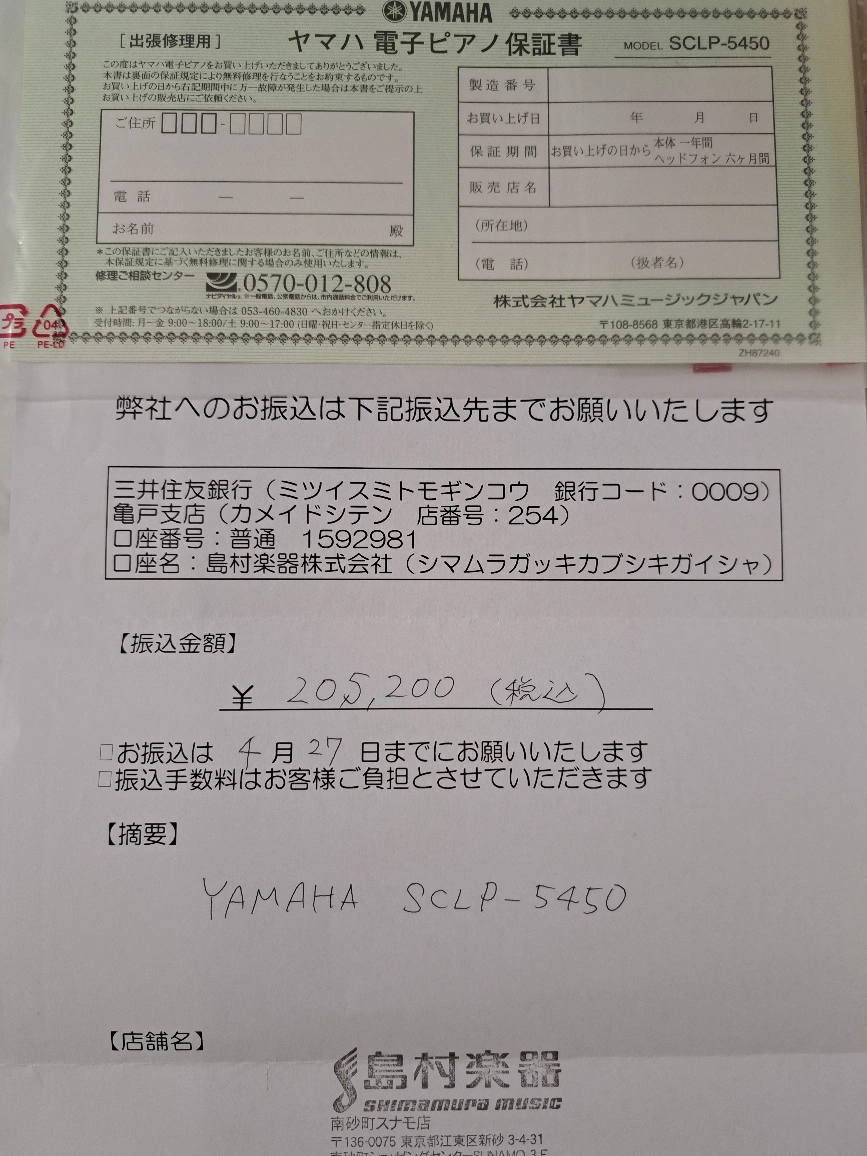 YAMAHA
[出張修理用]
ヤマハ 電子ピアノ保証書
MODEL SCLP-5450
この度はヤマハ電子ピアノをお買い上げいただきましてありがとうございました。
本書は裏面の保証規定により無料修理を行なうことをお約束するものです。
お買い上げの日から右記期間中に万一故障が発生した場合は本書をご提示の上
お買い上げの販売店にご依頼ください。
ご住所 □□□-□□□□
電話 ― ―
お名前 殿
*この保証書にご記入いただきましたお客様のお名前、ご住所などの情報は、
本保証規定に基づく無料修理に関する場合のみ使用いたします。
修理ご相談センター 0570-012-808
ナビダイヤル。 ※一般電話、公衆電話からは、市内通話料金でご利用いただけます。
※ 上記番号でつながらない場合は 053-460-4830 へおかけください。
受付時間: 月~金 9:00~18:00/土 9:00~17:00 (日曜・祝日・センター指定休日を除く)
製造番号
お買い上げ日 年 月 日
保証期間 お買い上げの日から 本体 一年間
ヘッドフォン 六ヶ月間
販売店名
(所在地)
(電 話) (扱者名)
株式会社ヤマハミュージックジャパン
〒108-8568 東京都港区高輪2-17-11
ZH87240
プラ
PE
04
PE-LD
弊社へのお振込は下記振込先までお願いいたします
三井住友銀行(ミツイスミトモギンコウ 銀行コード:0009)
亀戸支店(カメイドシテン 店番号:254)
口座番号:普通 1592981
口座名:島村楽器株式会社(シマムラガッキカブシキガイシャ)
【振込金額】
¥ 205,200 (税込)
□お振込は 4月27日までにお願いいたします
□振込手数料はお客様ご負担とさせていただきます
【摘要】
YAMAHA SCLP-5450
【店舗名】
島村楽器
SHIMAMURA MUSIC
南砂町スナモ店
〒136-0075 東京都江東区新砂 3-4-31
南砂町ショッピングセンターSUNAMO 3F